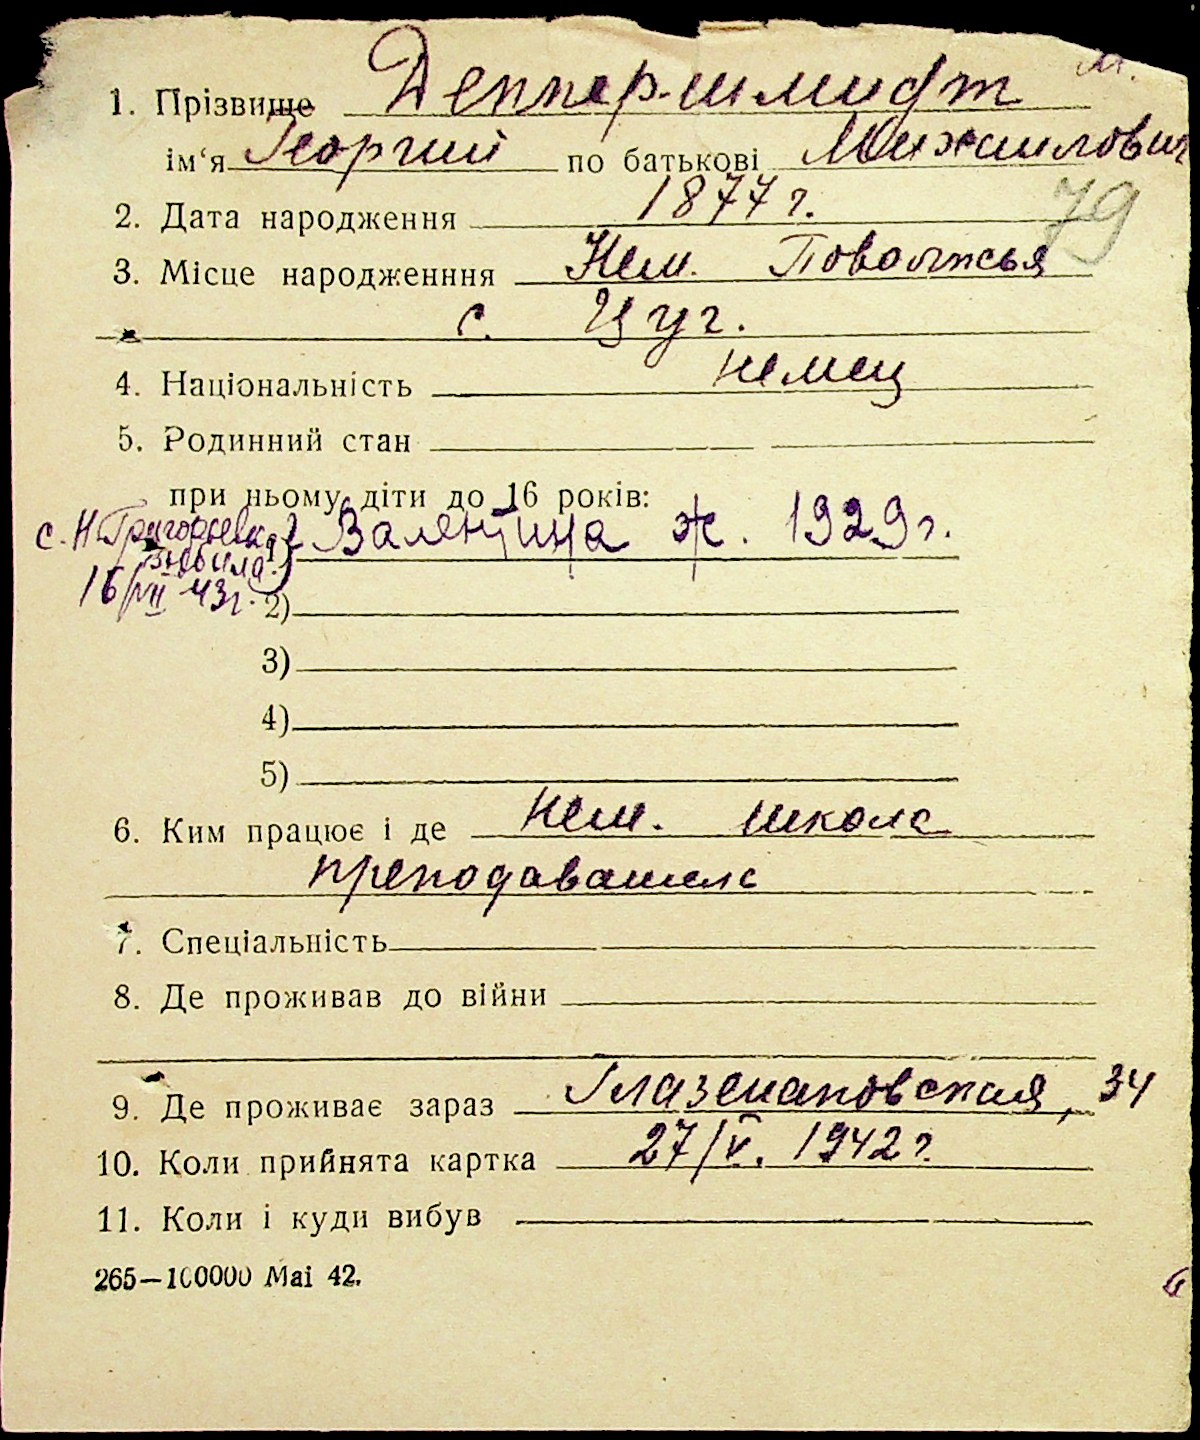 м.
1. Прізвище Деппершмидт
ім‘я Георгий по батькові Михайлович
2. Дата народження 1877 г.
79
3. Місце народженння Нем. Поволжья
с. Цуг.
4. Національність немец
5. Родинний стан
при ньому діти до 16 років:
с. Н-Григорьевка
выбыла
16/VII 43г.
1) Валентина ж. 1929 г.
2)
3)
4)
5)
6. Ким працює і де нем. школа
преподаватель
7. Спеціальність
8. Де проживав до війни
9. Де проживає зараз Глазенаповская, 34
10. Коли прийнята картка 27/V. 1942 г.
11. Коли і куди вибув
265—100000 Mai 42.